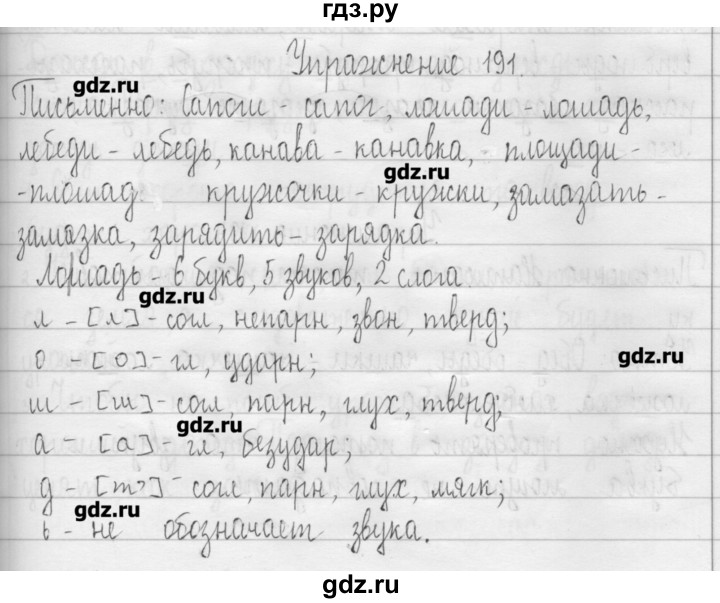 гдз.ру
Упражнение 191
gdz.ru
Письменно: Сапоги - сапог, лошади - лошадь,
лебеди - лебедь, канава - канавка, - площади -
gdz.ru
- площад: кружочки - кружки, замазать -
замазка, зарядить - зарядка.
Лошадь - 6 букв, 5 звуков, 2 слога
gdz.ru
л - [л] - согл, непарн, звон, тверд;
о - [о] - гл, ударн;
gdz.ru
ш - [ш] - согл, парн, глух, тверд;
gdz.ru
а - [а] - гл, безудар;
д - [т'] - согл, парн, глух, мягк;
ь - не обозначает звука.
gdz.ru